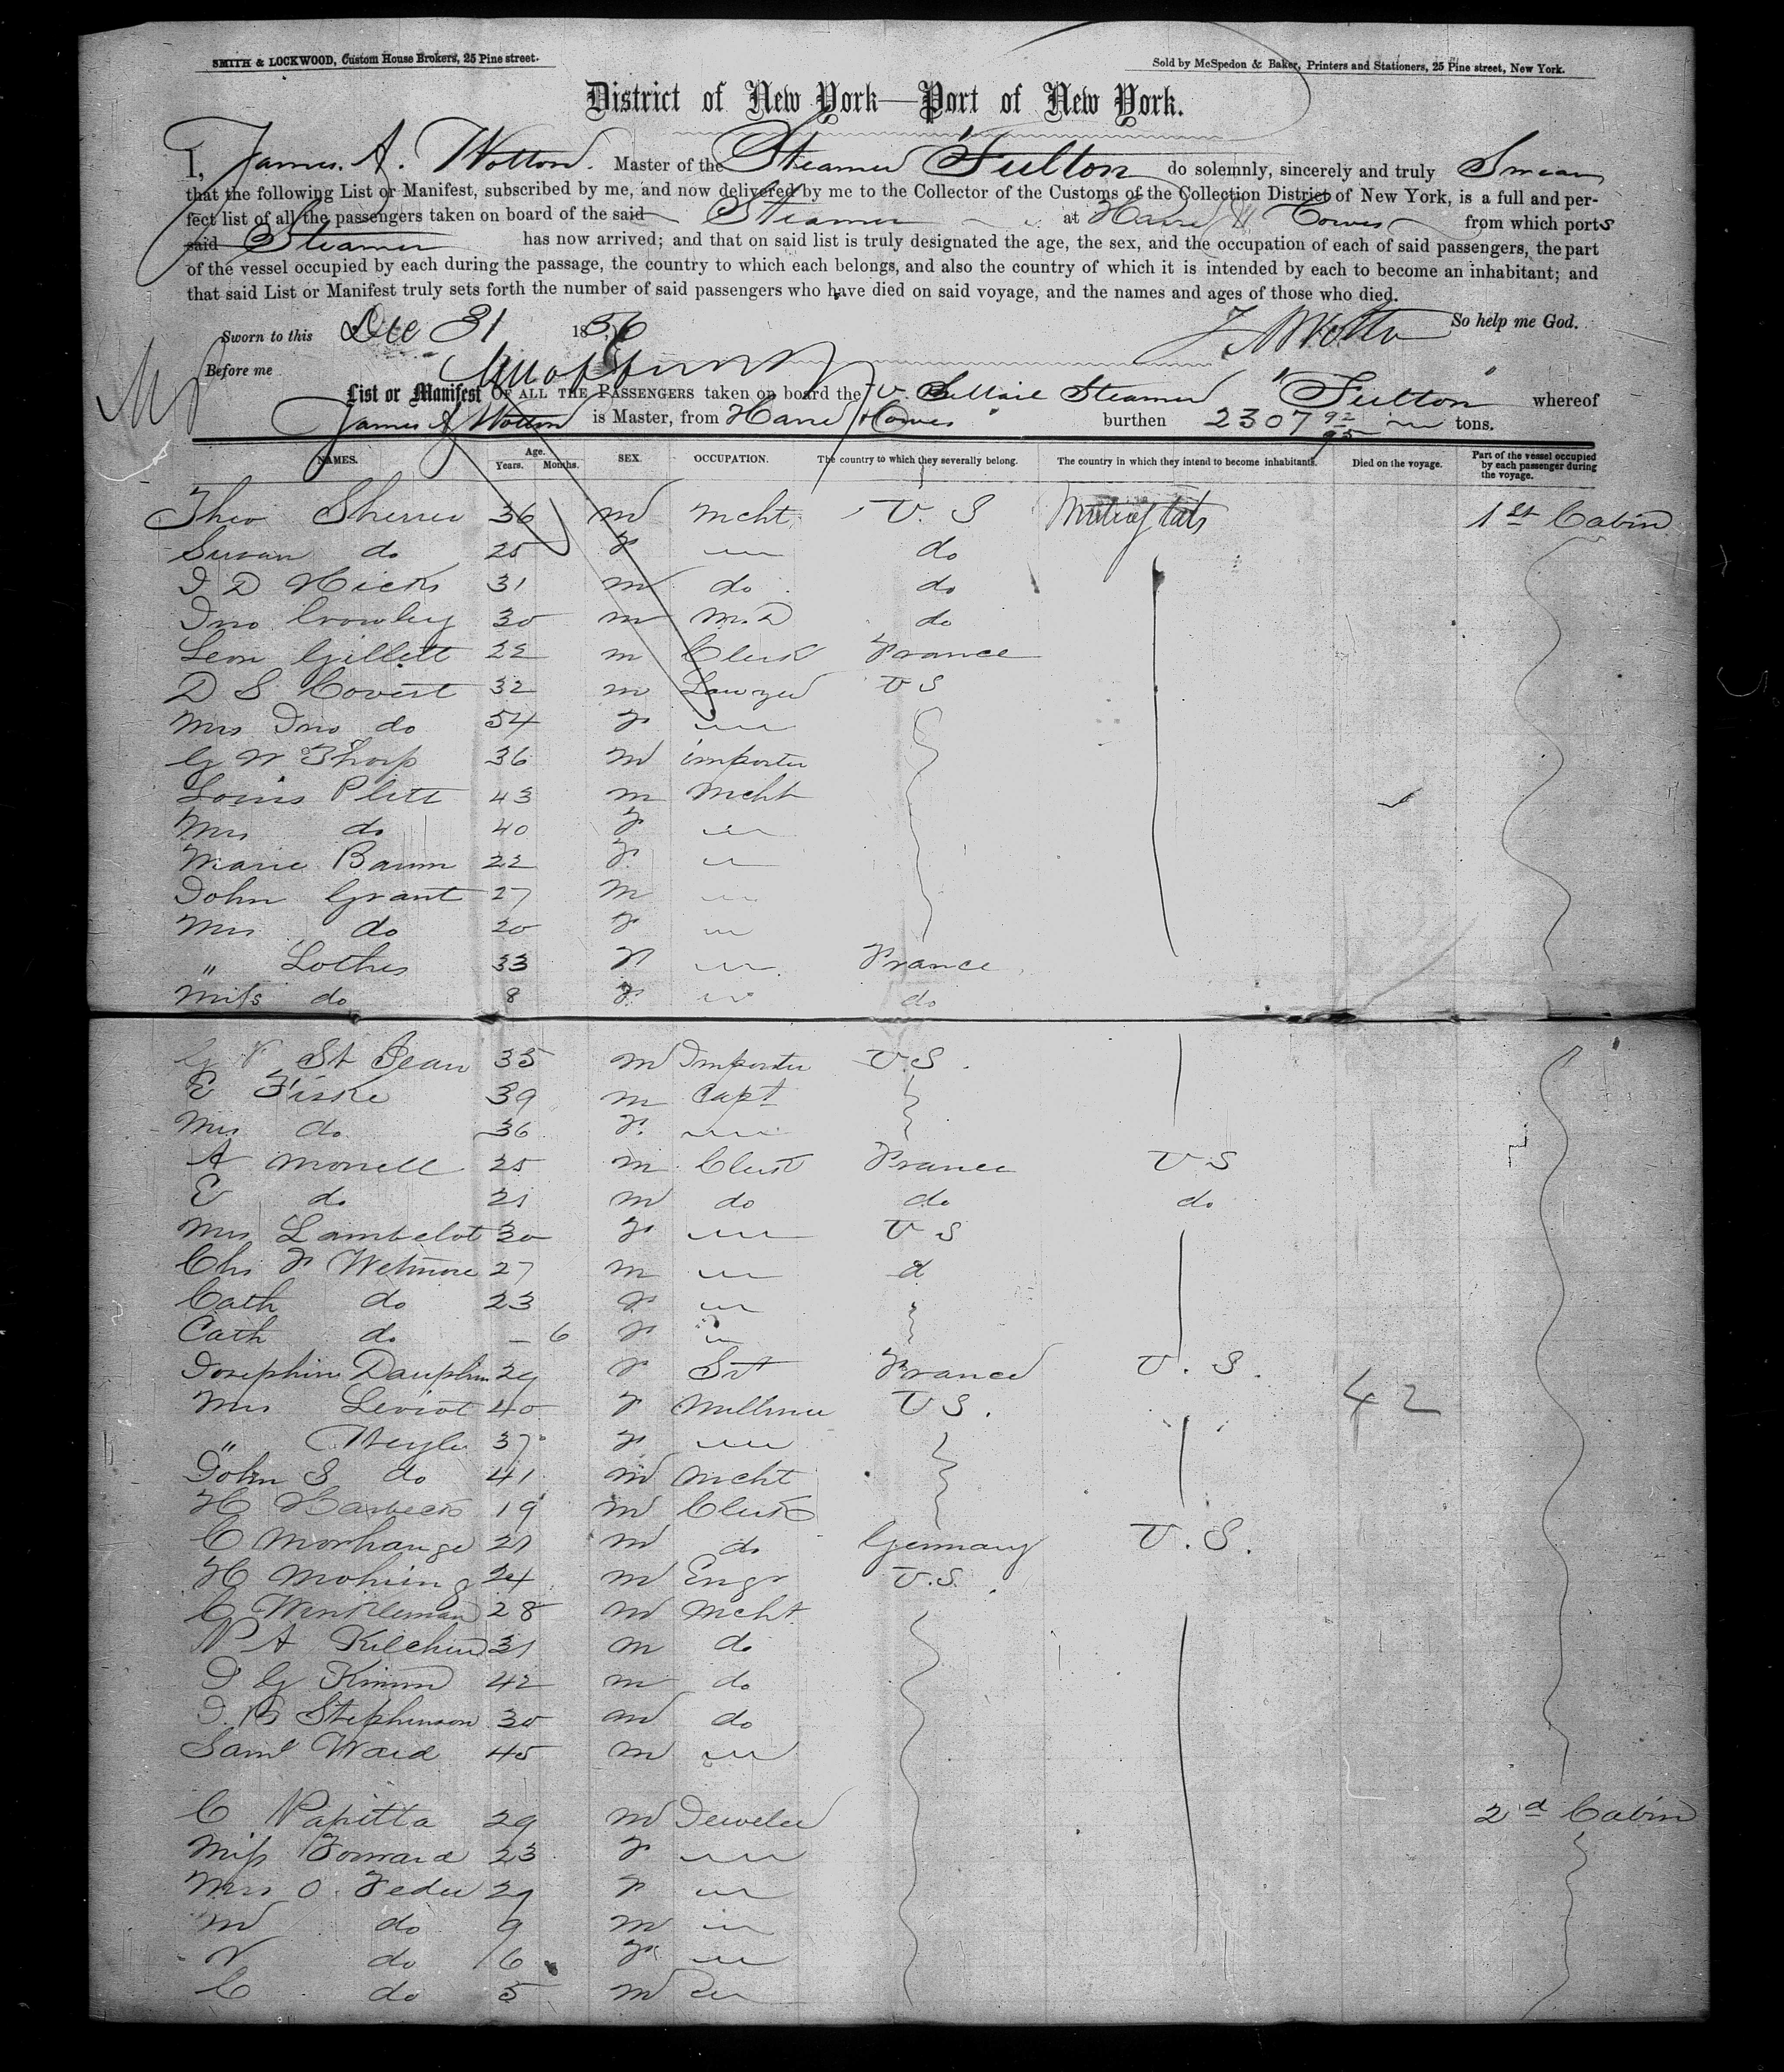 SMITH & LOCKWOOD, Custom House Brokers, 25 Pine street.
Sold by McSpedon & Baker, Printers and Stationers, 25 Pine street, New York.
District of New York—Port of New York.
I, James. A. Wotton. Master of the Steamer "Fulton do solemnly, sincerely and truly Swear
that the following List or Manifest, subscribed by me, and now delivered by me to the Collector of the Customs of the Collection District of New York, is a full and per-
fect list of all the passengers taken on board of the said Steamer at Havre & Cowes from which ports
said Steamer has now arrived; and that on said list is truly designated the age, the sex, and the occupation of each of said passengers, the part
of the vessel occupied by each during the passage, the country to which each belongs, and also the country of which it is intended by each to become an inhabitant; and
that said List or Manifest truly sets forth the number of said passengers who have died on said voyage, and the names and ages of those who died.
Sworn to this Dec 31 1856 J A Wotton So help me God.
Before me
List or Manifest OF ALL THE PASSENGERS taken on board the U. S. Mail Steamer "Fulton" whereof
James A Wotton is Master, from Havre & Cowes burthen 2307 92/95 tons.
NAMES. Age. Years. Months. SEX. OCCUPATION. The country to which they severally belong. The country in which they intend to become inhabitants. Died on the voyage. Part of the vessel occupied by each passenger during the voyage.
Theo 36 m mcht U. S 1st Cabin
Susan do 25 F do
J D Hicks 31 m do do
Jno Crowley 30 m M.D do
Leon Gillett 22 m Clerk France
D S Covert 32 m Lawyer U S
Mrs Jno do 54 F
G W Thorp 36 m importer
Louis Plitt 43 m Mcht
Mrs do 40 F
Marie Baum 22 F
John Grant 27 m
Mrs do 20 F
" Lothes 33 F France
Miss do 8 F do
G St Jean 35 m Importer U S.
E Fiske 39 m Capt
Mrs do 36 F
A Morrell 25 m Clerk France U S
E do 21 m do do do
Mrs Lambelot 30 F U S
Chs F Wetmore 27 m d
Cath do 23 F
Cath do — 6 F
Josephine Dauphin 29 F Svt France U. S.
Mrs Leviot 40 F Milliner U S. 42
" 37 F
John S do 41 m mcht
H Harbeck 19 m Clerk
C Morhange 21 m do Germany U. S.
H Mohring 24 m Engr U. S.
C Winkleman 28 m mcht
31 m do
42 m do
J. B Stephenson 30 m do
Saml Ward 45 m
C Papitta 29 m Jeweler 2d Cabin
Miss 23 F
Mrs O. Feder 29 F
M do 9 m
N do 6 F
C do 5 m